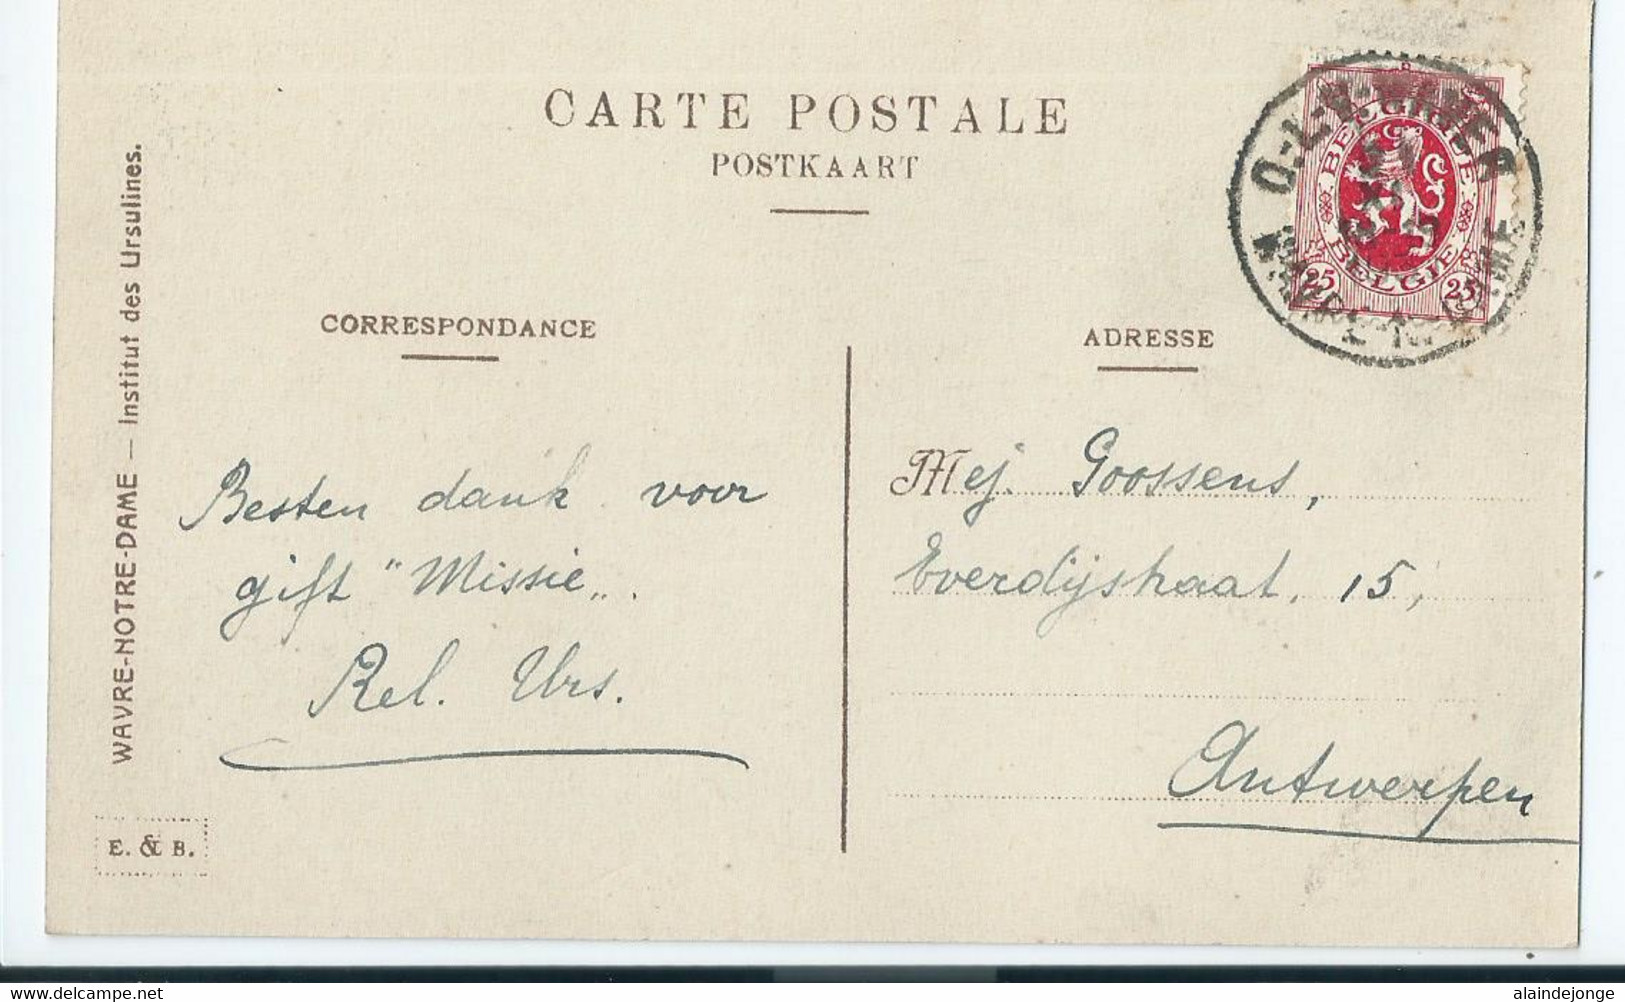 CARTE POSTALE
POSTKAART
CORRESPONDANCE
ADRESSE
WAVRE-NOTRE-DAME — Institut des Ursulines.
E. & B.
O.-L.-V.-WAVER
WAVRE-N.-DAME
BELGIQUE
BELGIE
25 25
Besten dank voor
gift "Missie„.
Rel. Urs.
Mej. Goossens,
Everdijstraat, 15,
Antwerpen
alaindejonge